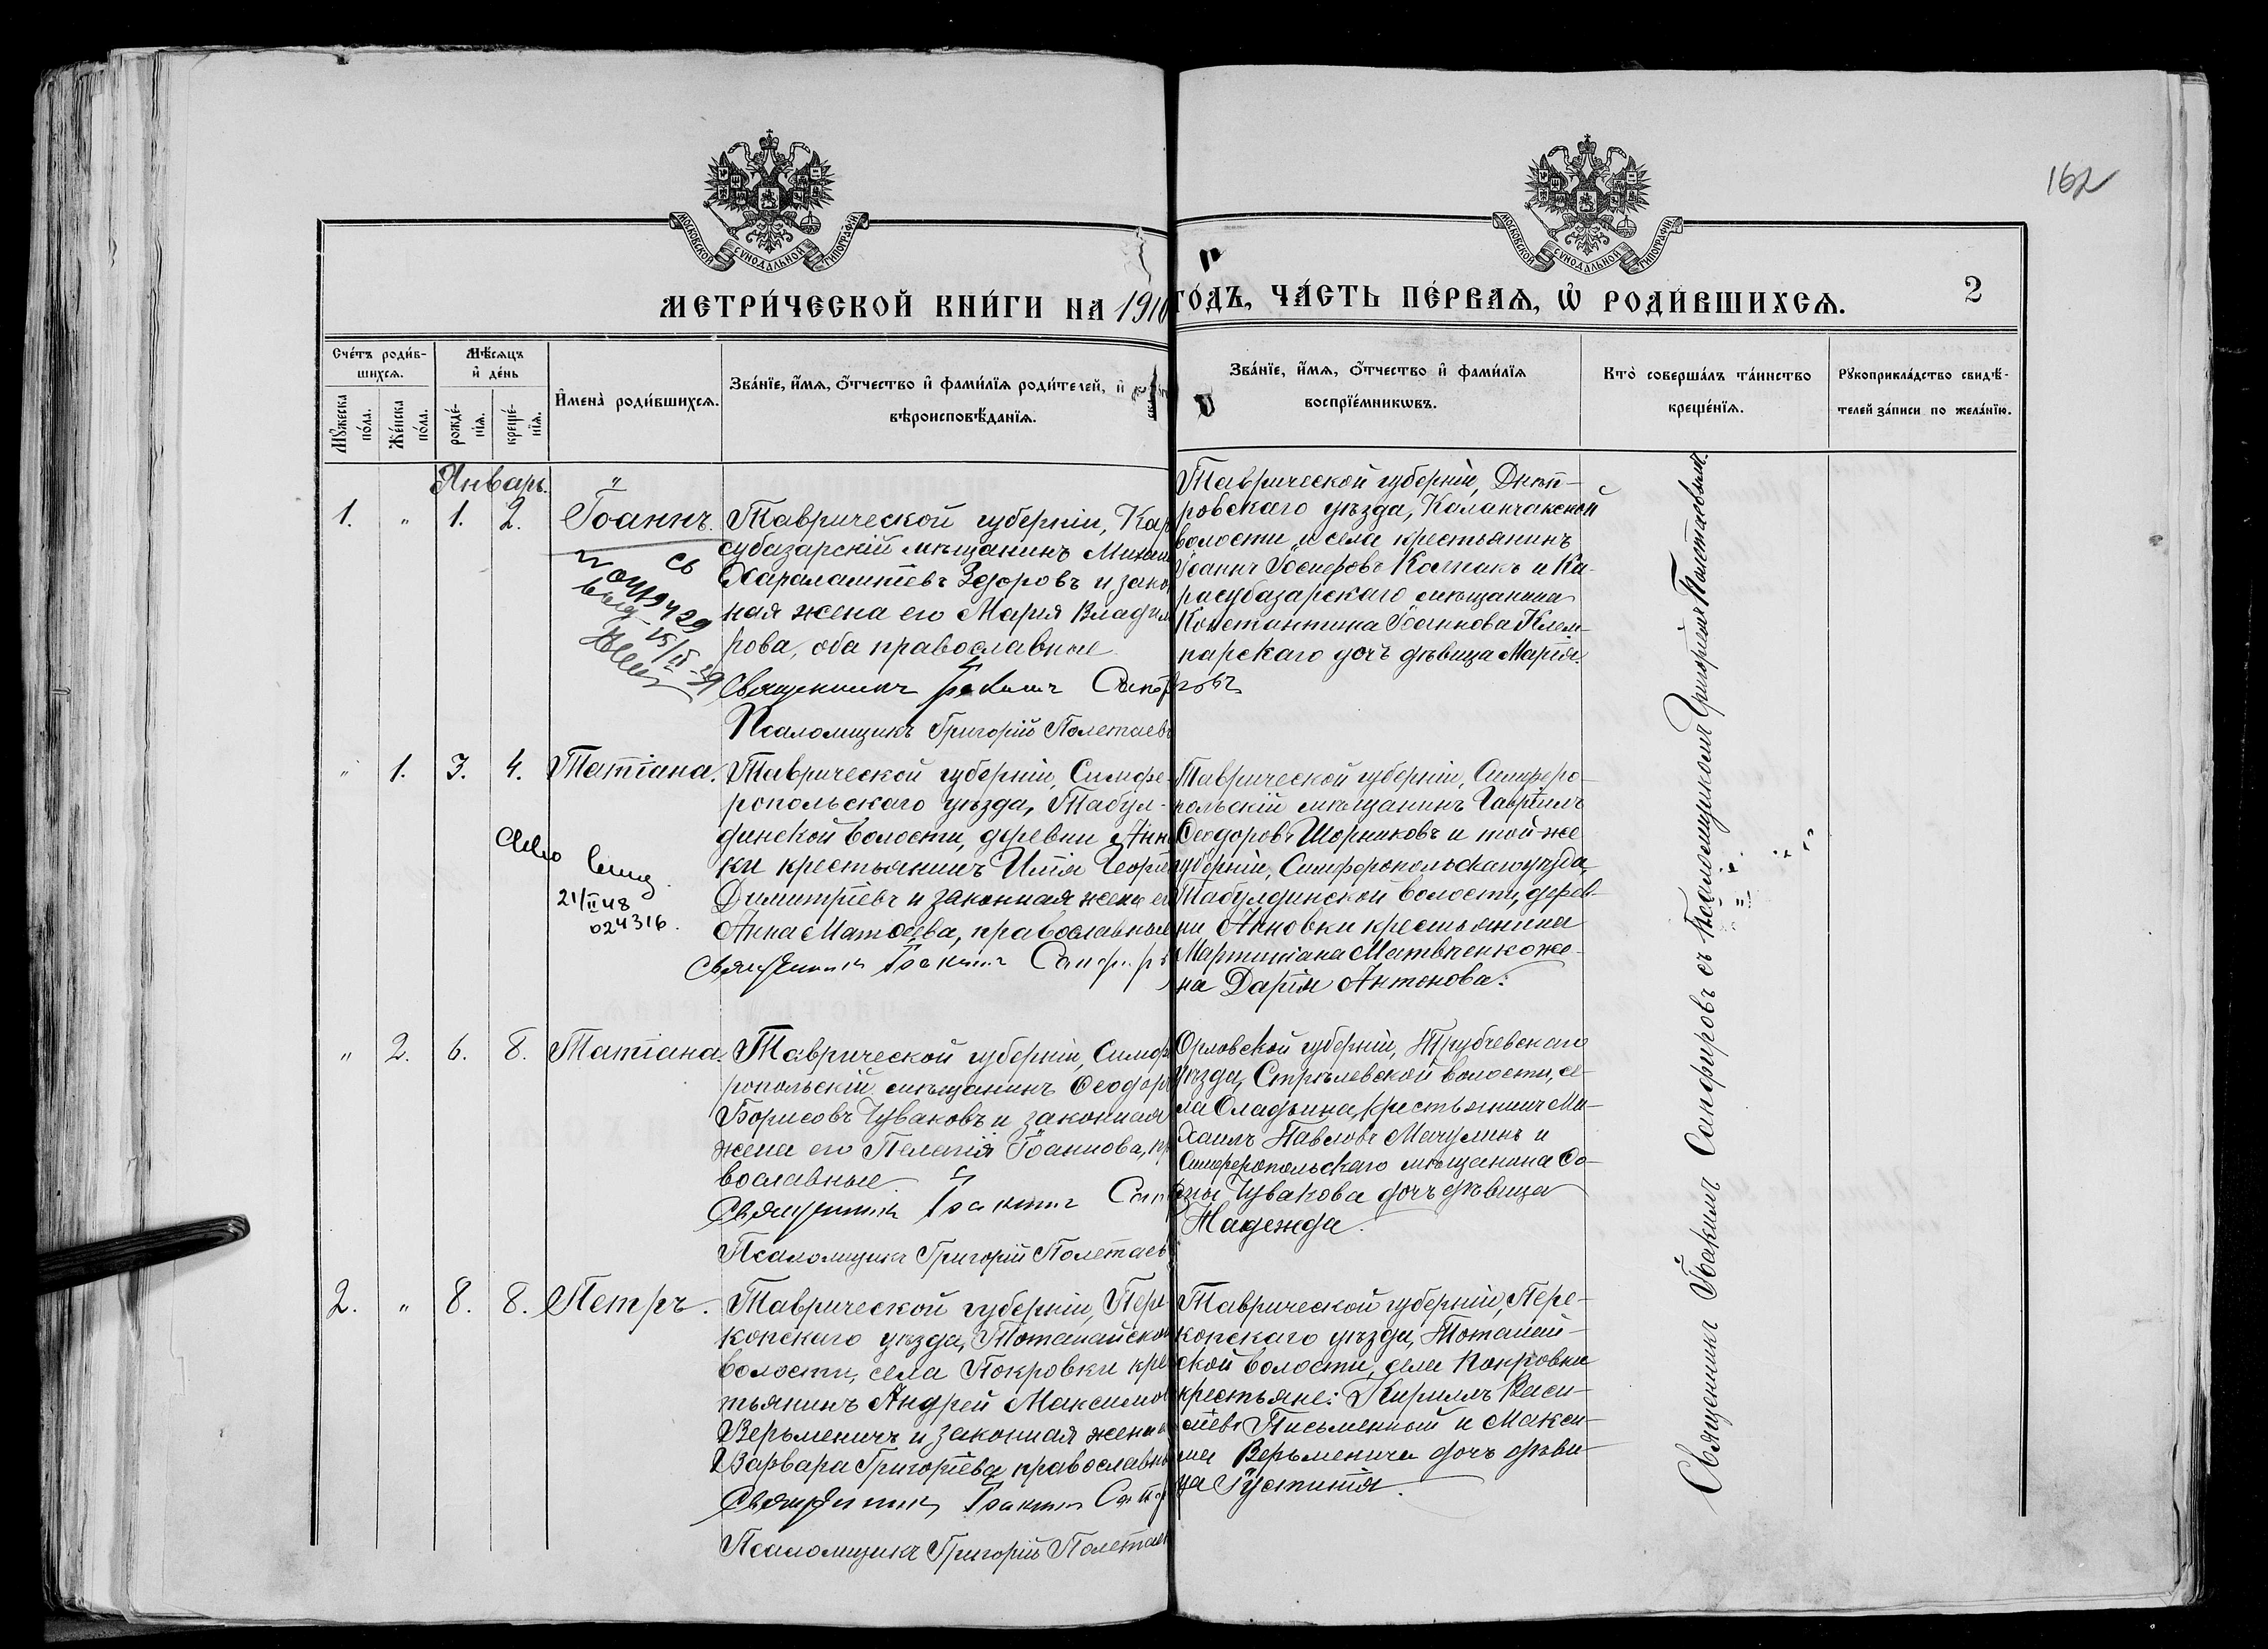 162
МОСКОВСКОЙ СѴНОДАЛЬНОЙ ТИПОГРАФІИ
МОСКОВСКОЙ СѴНОДАЛЬНОЙ ТИПОГРАФІИ
МЕТРИ́ЧЕСКОЙ КНИ́ГИ НА 1910
ГО́ДЪ, ЧА́СТЬ ПЕ́РВАѦ, Ѽ РОДИ́ВШИХСѦ.
2
Сче́тъ роди́в-
шихсѧ.
Мꙋ́жеска по́ла.
Же́нска по́ла.
Мѣ́сѧцъ
и де́нь
рожде́-
нїѧ.
креще́-
нїѧ.
Имена̀ роди́вшихсѧ.
Зва́нїе, и́мѧ, о́тчество и фами́лїѧ роди́телей, и
вѣроисповѣ́данїѧ.
Зва́нїе, и́мѧ, о́тчество и фами́лїѧ
воспрїе́мникѡвъ.
Кто̀ соверша́лъ та́инство
креще́нїѧ.
Рꙋкоприкла́дство свидѣ́-
телей за́писи по жела́нїю.
Январь.
1. " 1. 2. Іоаннъ.
Таврической губерніи, Кар
субазарскій мѣщанинъ Михаи
Харалампіевъ Здоровъ и закон
ная жена его Марія Владим
рова, оба православные
Священникъ Іоакимъ Сапф
Псаломщикъ Григорій Полетаевъ
Таврической губерніи, Днѣп-
ровскаго уѣзда, Каланчакской
волости и села крестьянинъ
Іоаннъ Іосифовъ Колпакъ и Ка-
расубазарскаго мѣщанина
Константина Іоаннова Клем-
парскаго дочь дѣвица Марія.
" 1. 3. 4. Татіана.
21/II 48
024316.
Таврической губерніи, Симфе-
ропольскаго уѣзда, Табул-
динской волости, деревни Анн
ки крестьянинъ Илія Георгі
Димитріевъ и законная жена е
Анна Матѳеева, православные
Священникъ Іоакимъ Сапфиръ
Таврической губерніи, Симферо-
польскій мѣщанинъ Гавріилъ
Ѳеодоровъ Шорниковъ и той-же
губерніи, Симферопольскаго уѣзда,
Табулдинской волости, дерев-
ни Анновки крестьянина
Мартиніана Матвѣенко же-
на Дарія Антонова.
" 2. 6. 8. Татіана.
Таврической губерніи, Симф
ропольскій мѣщанинъ Ѳеодоръ
Борисовъ Чуваковъ и законная
жена его Пелагія Іоаннова, пр
вославные
Священникъ Іоакимъ Сап
Псаломщикъ Григорій Полетаев
Орловской губерніи, Трубчевскаго
уѣзда, Стрѣлевской волости, се-
ла Оладьина, крестьянинъ Ми-
хаилъ Павловъ Мачулинъ и
Симферопольскаго мѣщанина Ѳо-
мы Чувакова дочь дѣвица
Надежда.
2. " 8. 8. Петръ.
Таврической губерніи, Пере-
копскаго уѣзда, Тотанайской
волости, села Покровки крес
тьянинъ Андрей Максимов
Верьменичъ и законная жена е
Варвара Григоріева, православны
Священникъ Іоакимъ Сапф
Псаломщикъ Григорій Полетаев
Таврической губерніи, Пере-
копскаго уѣзда, Тотанай-
ской волости, села Покровки
крестьяне: Кириллъ Васи-
ліевъ Письменный и Макси-
ма Верьменича дочь дѣви-
ца Іустинія.
Священникъ Іоакимъ Сапфировъ съ псаломщикомъ Григоріемъ Полетаевымъ.